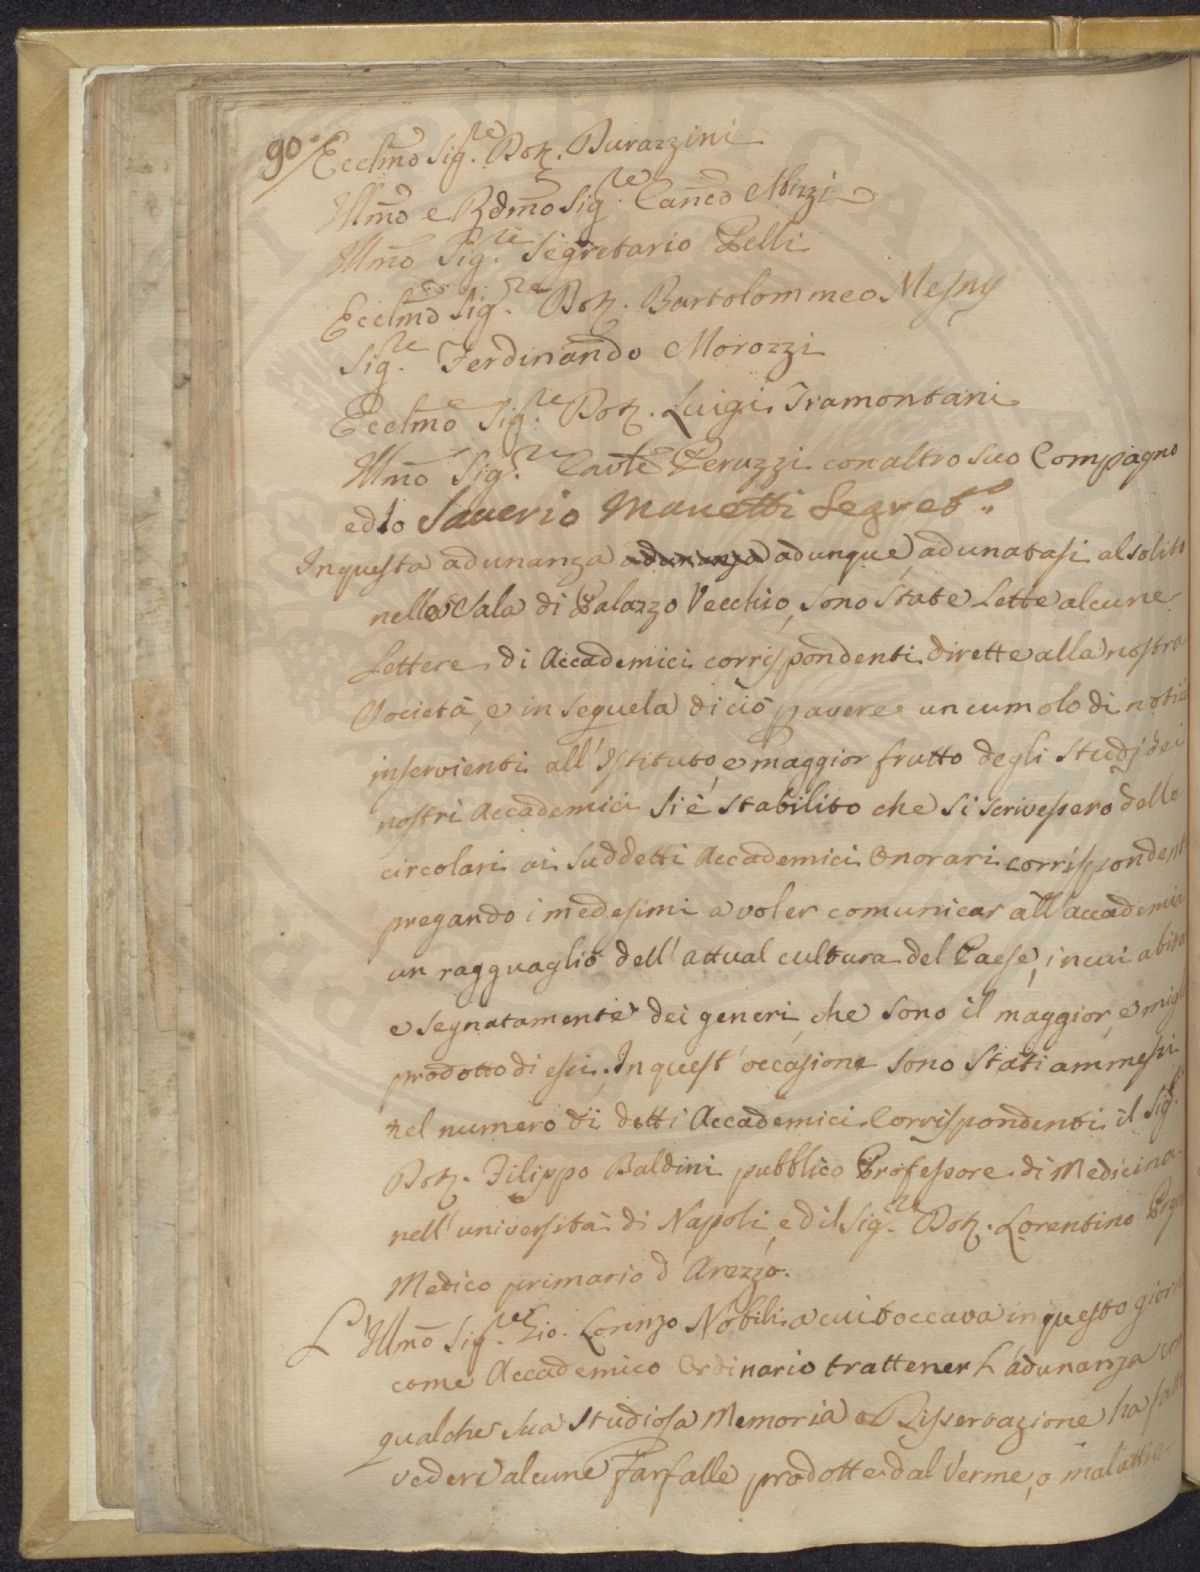 90
Ecclmo Sig.re Dott. Durazzini
Illmo e Rdmo Sig.re Canco Albizzi
Illmo Sig.re Segretario Pelli
Ecclmo Sig.re Dott. Bartolommeo Mesny
Sig.re Ferdinando Morozzi
Ecclmo Sig.re Dott. Luigi Tramontani
Illmo Sig.re Cavle Peruzzi con altro suo Compagno
ed Io Saverio Manetti Segret.o
In questa adunanza adunanza adunque, adunatasi al solito
nella Sala di Palazzo Vecchio, sono state lette alcune
lettere di Accademici corrispondenti dirette alla nostra
Società, e in sequela di ciò p avere un cumolo di notizie
inservienti all'Istituto, e maggior frutto degli studj dei
nostri Accademici si è stabilito che si scrivessero delle
circolari ai suddetti Accademici Onorari corrispondent
pregando i medesimi a voler comunicar all'accademia
un ragguaglio dell'attual cultura del Paese, in cui abita
e segnatamente dei generi, che sono il maggior, e migl
prodotto di essi. In quest'occasione sono stati ammessi
nel numero di detti Accademici Corrispondenti il Sig.re
Dott. Filippo Baldini pubblico Professore di Medicina
nell'università di Napoli, ed il Sig.re Dott. Lorentino
Medico primario d'Arezzo.
L'Illmo Sig.re Gio. Lorenzo Nobili a cui toccava in questo gior
come Accademico Ordinario trattener l'adunanza con
qualche sua studiosa Memoria o Dissertazione ha fatt
vedere alcune Farfalle prodotte dal Verme, o malattia